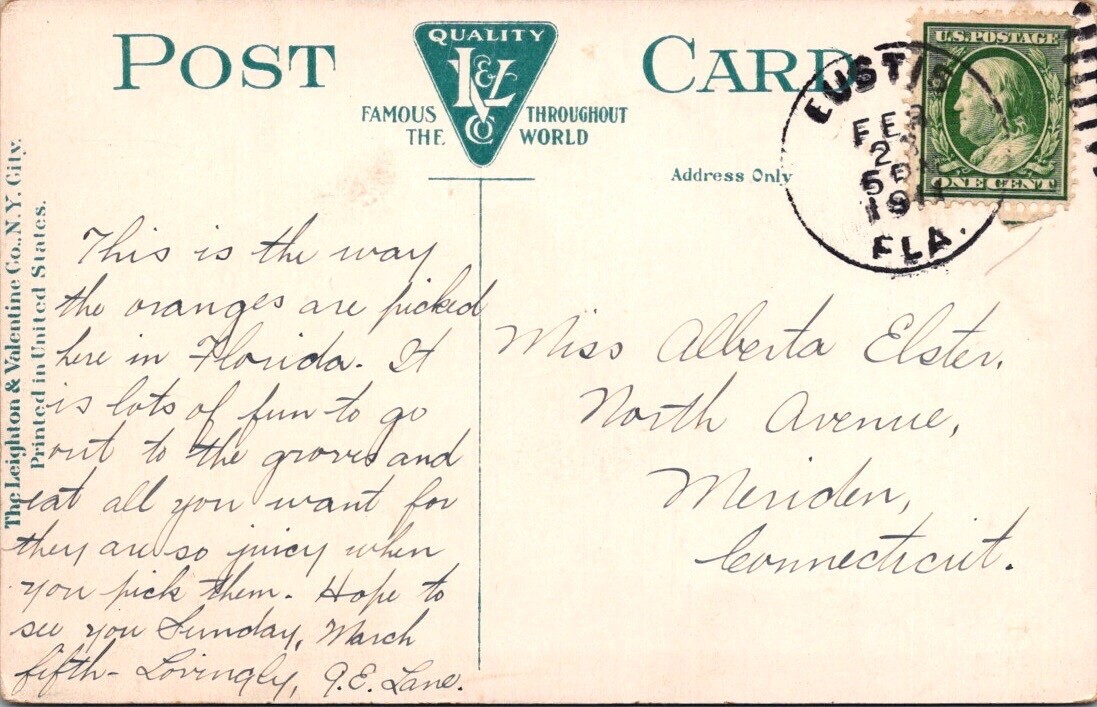 POST CARD
QUALITY
L&V
CO
FAMOUS THROUGHOUT
THE WORLD
Address Only
U.S. POSTAGE
ONE CENT
EUSTIS
FEB
5 PM
1911
FLA.
The Leighton & Valentine Co., N.Y. City.
Printed in United States.
This is the way
the oranges are picked
here in Florida. It
is lots of fun to go
out to the groves and
eat all you want for
they are so juicy when
you pick them. Hope to
see you Sunday, March
fifth - Lovingly, G.E. Lane.
Miss Alberta Elster,
North Avenue,
Meriden,
Connecticut.